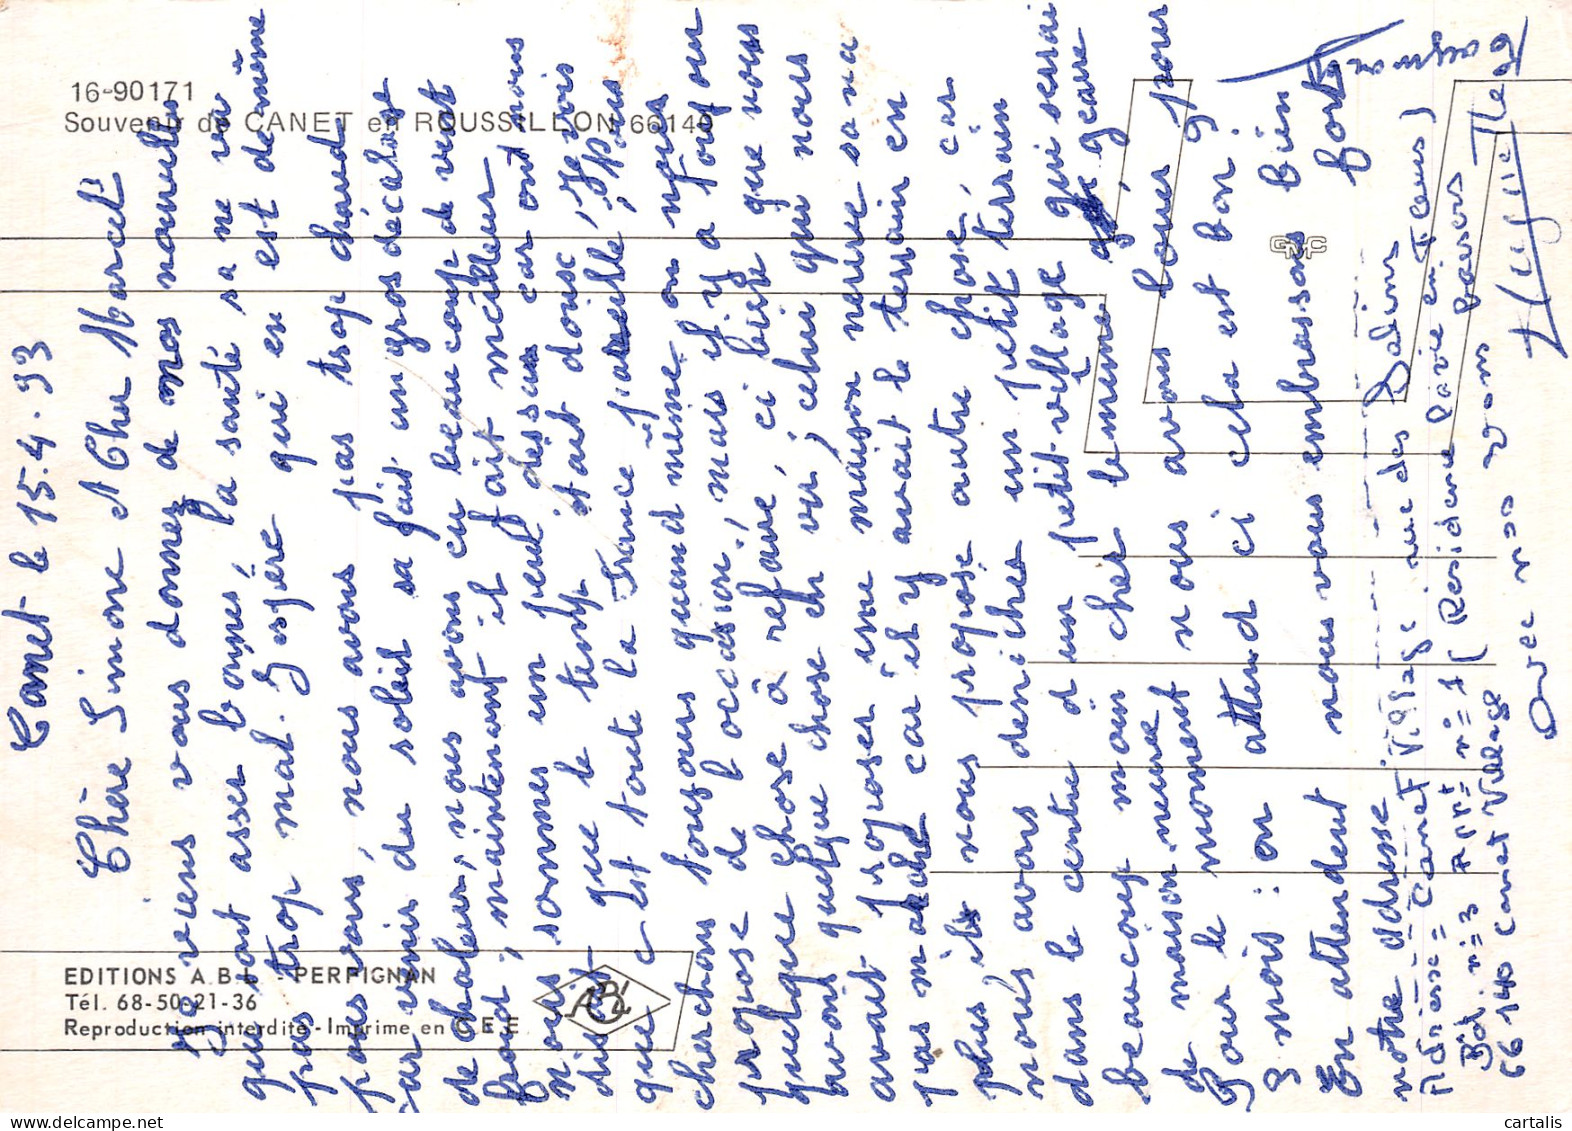 16-90171
Souvenir de CANET en ROUSSILLON 66140
Canet le 15.4.93
Chère Simone et Cher Marcel
Je viens vous donnez de nos nouvelles
qui sont asser bonnes, la santé sa ne va
pas trop mal. J'espère qui en est de même
pour vous, nous avons pas trop chaud
car venir du soleil sa fait un gros décalage
de chaleur, nous avons eu beaucoup de vent
froid, maintenant il fait meilleur
nous sommes un peut déssus car ont nous
disait que le temps était douse, Je vois
que c'est toute la France pareille, Nous
cherchons toujours quand même, on nous
propose de l'occasion, mais il y a toujour
quelque chose à refaire, ci bien que nous
avons quelque chose en vu, celui qui nous
avait proposer une maison neuve sa na
pas marché car il y avait le terrain en
plus, il nous propose autre chose, car
nous avons dénicher un petit terrain
dans le centre d'un petit village qui serrai
beaucoup moin cher le même genre
de maison neuve, nous avons louer pour
Pour le moment
3 mois : on attend ci cela est bon
En attendent nous vous embrassons bien fort
notre adresse
Adresse = Canet Village rue des Salins
Bd. n=3 Appt n=1 (Residence la vie en Fleurs)
66140 Canet Village
Avec nos bons baisers
EDITIONS A.B.L - PERPIGNAN
Tél. 68-50-21-36
Reproduction interdite - Imprime en C.E.E
ABL
cartalis.com